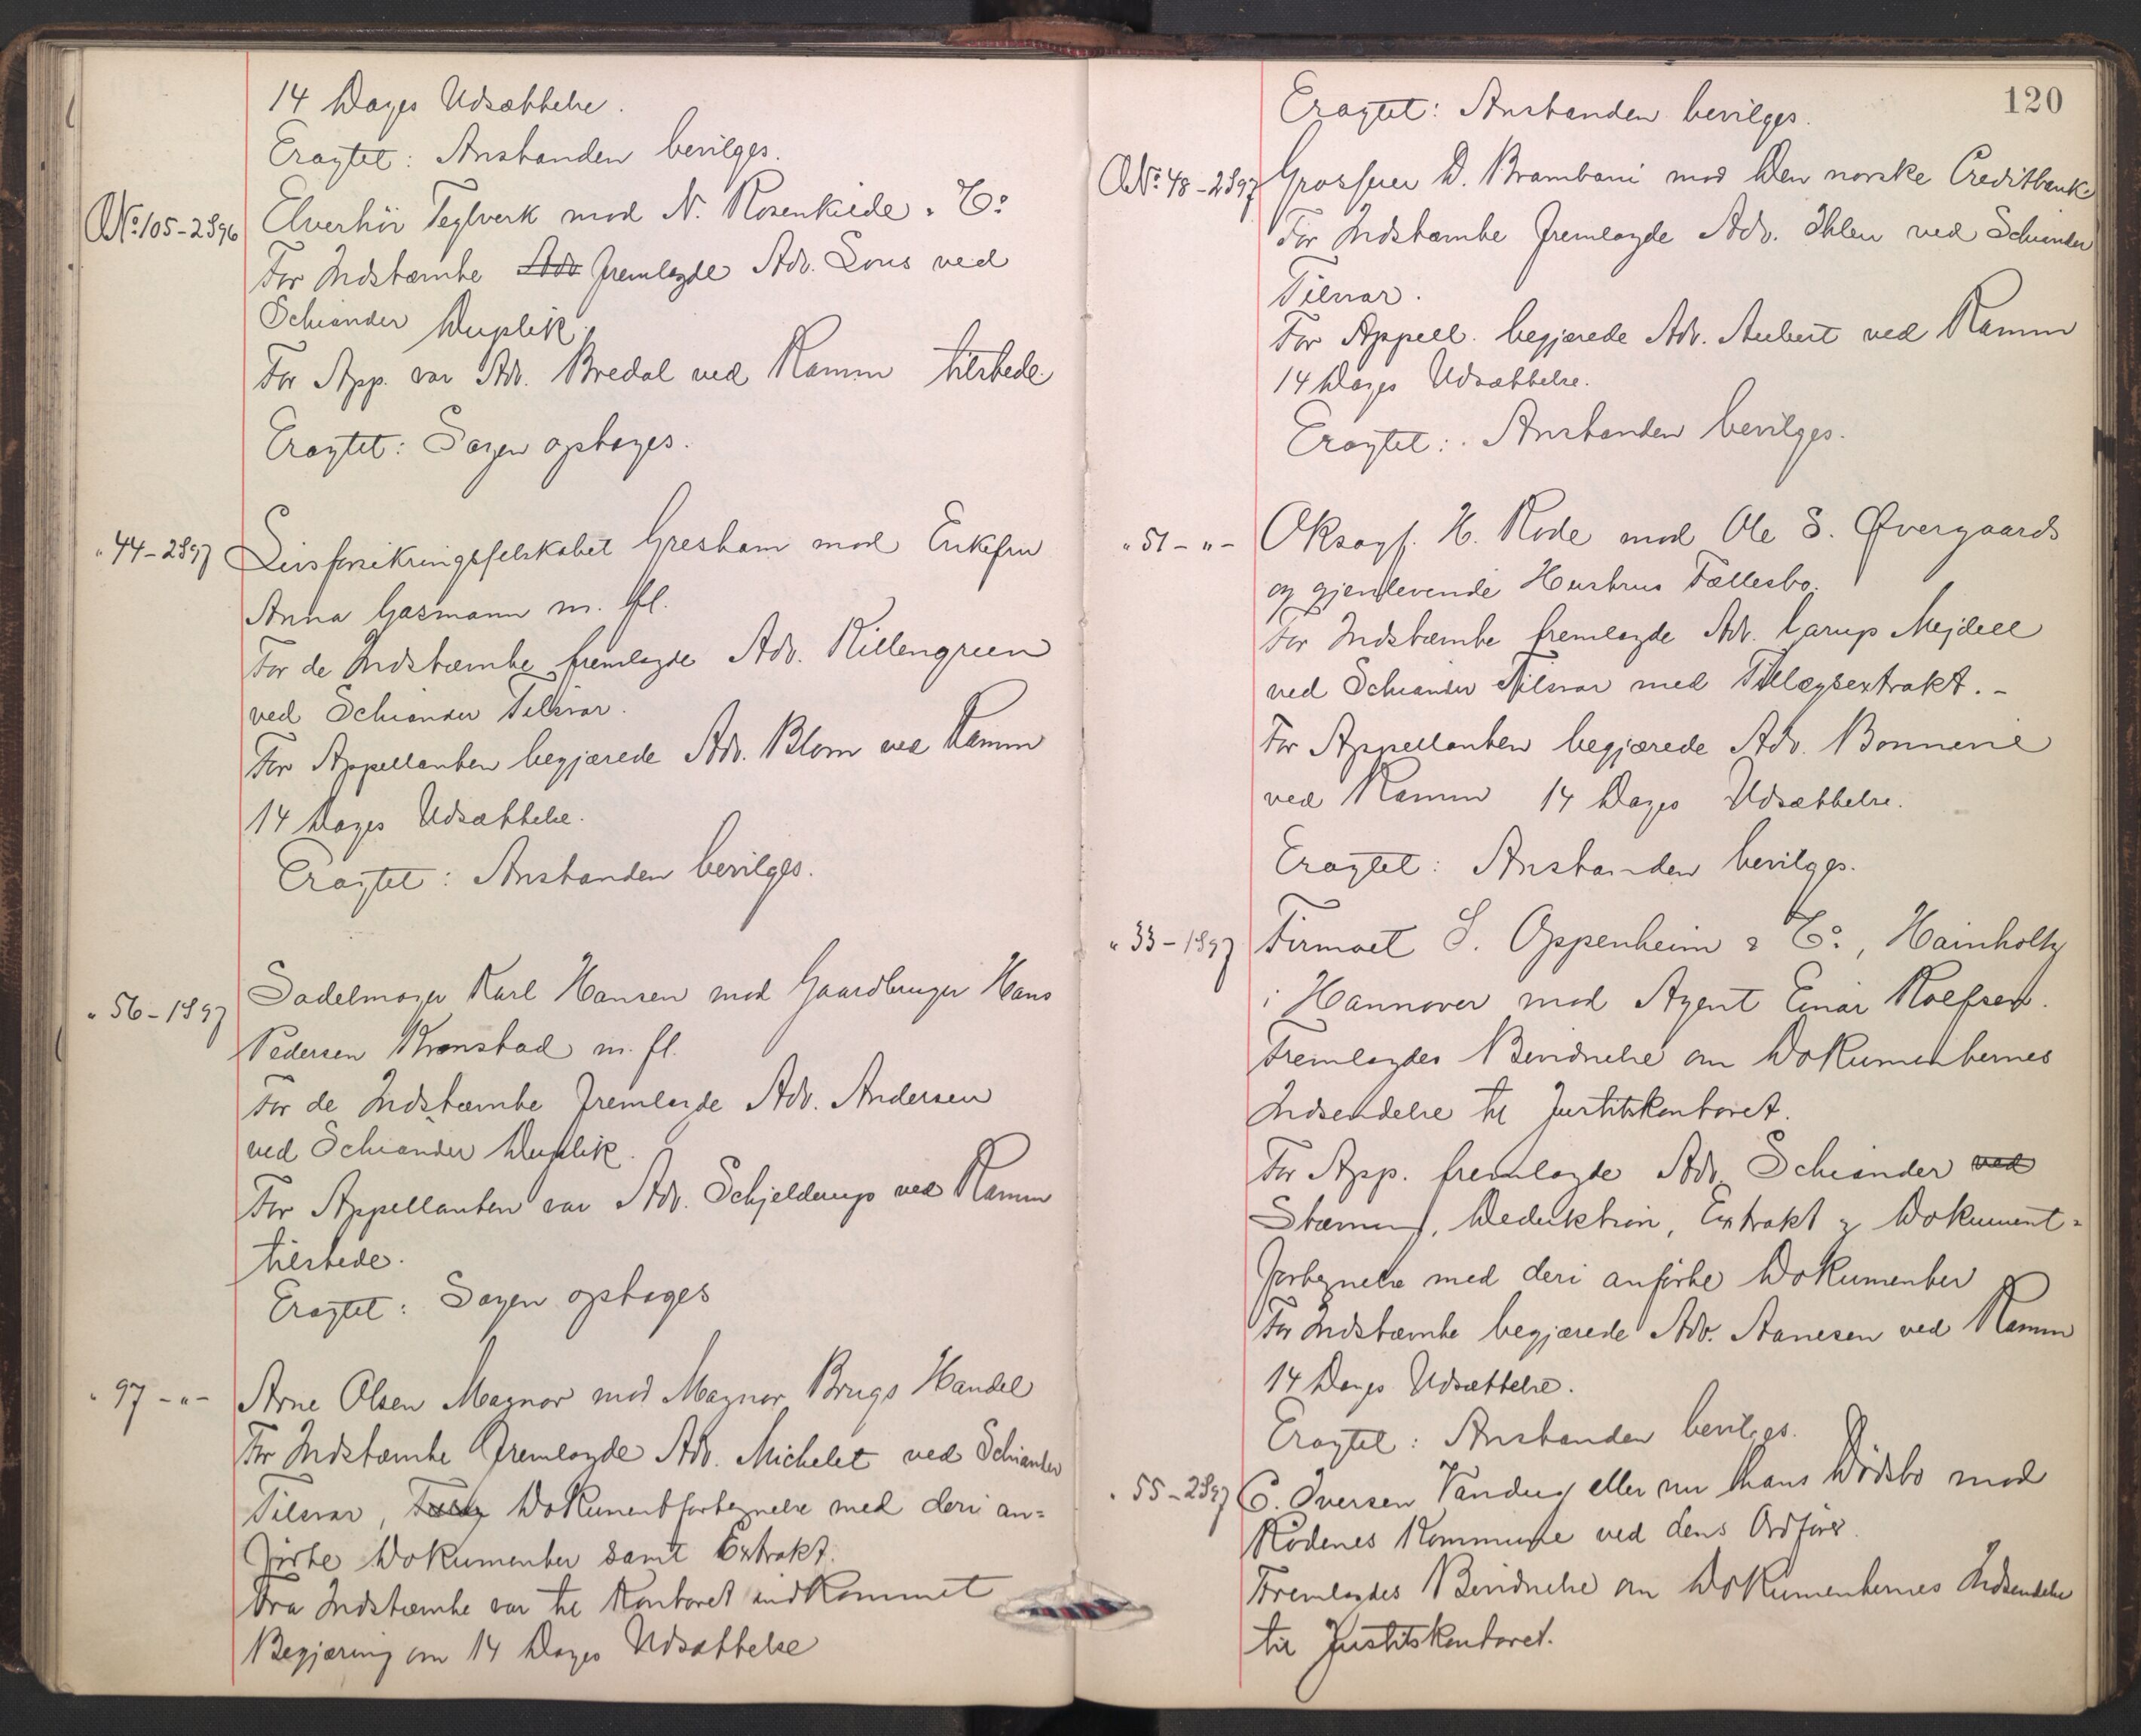 14 Dages Udsættelse.
Eragtet: Anstanden bevilges.
No. 105-2896 Elverhöi Teglverk mod N. Rosenkilde & Co.
For Indstævnte Adv fremlagde Adv. Lous ved
Schiander Duplik.
For App. var Adv. Bredal ved Ramm tilstede.
Eragtet: Sagen optages.
" 44-2897 Livsforsikringsselskabet Gresham mod Enkefru
Anna Gasmann m. fl.
For de Indstævnte fremlagde Adv. Killengreen
ved Schiander Tilsvar.
For Appellanten begjærede Adv. Blom ved Ramm
14 Dages Udsættelse.
Eragtet: Anstanden bevilges.
" 56-1897 Sadelmager Karl Hansen mod Gaardbruger Hans
Pedersen Kronstad m. fl.
For de Indstævnte fremlagde Adv. Andersen
ved Schiander Duplik.
For Appellanten var Adv. Schjelderup ved Ramm
tilstede.
Eragtet: Sagen optages
" 97-"- Arne Olsen Magnor mod Magnor Brugs Handel
For Indstævnte fremlagde Adv. Michelet ved Schiander
Tilsvar, Dokumentfortegnelse med deri an=
förte Dokumenter samt Extrakt.
Fra Indstævnte var til Kontoret indkommet
Begjæring om 14 Dages Udsættelse
120
Eragtet: Anstanden bevilges.
No. 48-2897 Grosserer D. Brambani mod Den norske Creditbank
For Indstævnte fremlagde Adv. Ihlen ved Schiander
Tilsvar.
For Appell. begjærede Adv. Aubert ved Ramm
14 Dages Udsættelse.
Eragtet: Anstanden bevilges.
" 51-"- Oksagf. H. Rode mod Ole S. Øvergaards
og gjenlevende Hustrus Fællesbo.
For Indstævnte fremlagde Adv. Carup Mejdell
ved Schiander Tilsvar med Tillægsextrakt. -
For Appellanten begjærede Adv. Bonnevie
ved Ramm 14 Dages Udsættelse.
Eragtet: Anstanden bevilges.
" 33-1897 Firmaet S. Oppenheim & Co., Hainholtz
i Hannover mod Agent Einar Roefsen.
Fremlagdes Bevidnelse om Dokumenternes
Indsendelse til Justitskontoret.
For App. fremlagde Adv. Schiander ved
Stævning, Deduktion, Extrakt & Dokument=
fortegnelse med deri anförte Dokumenter
For Indstævnte begjærede Adv. Aanesen ved Ramm
14 Dages Udsættelse.
Eragtet: Anstanden bevilges.
" 55-2897 C. Iversen Vandug eller nu hans Dödsbo mod
Rödenes Kommune ved dens Ordförer.
Fremlagdes Bevidnelse om Dokumenternes Indsendelse
til Justitskontoret.